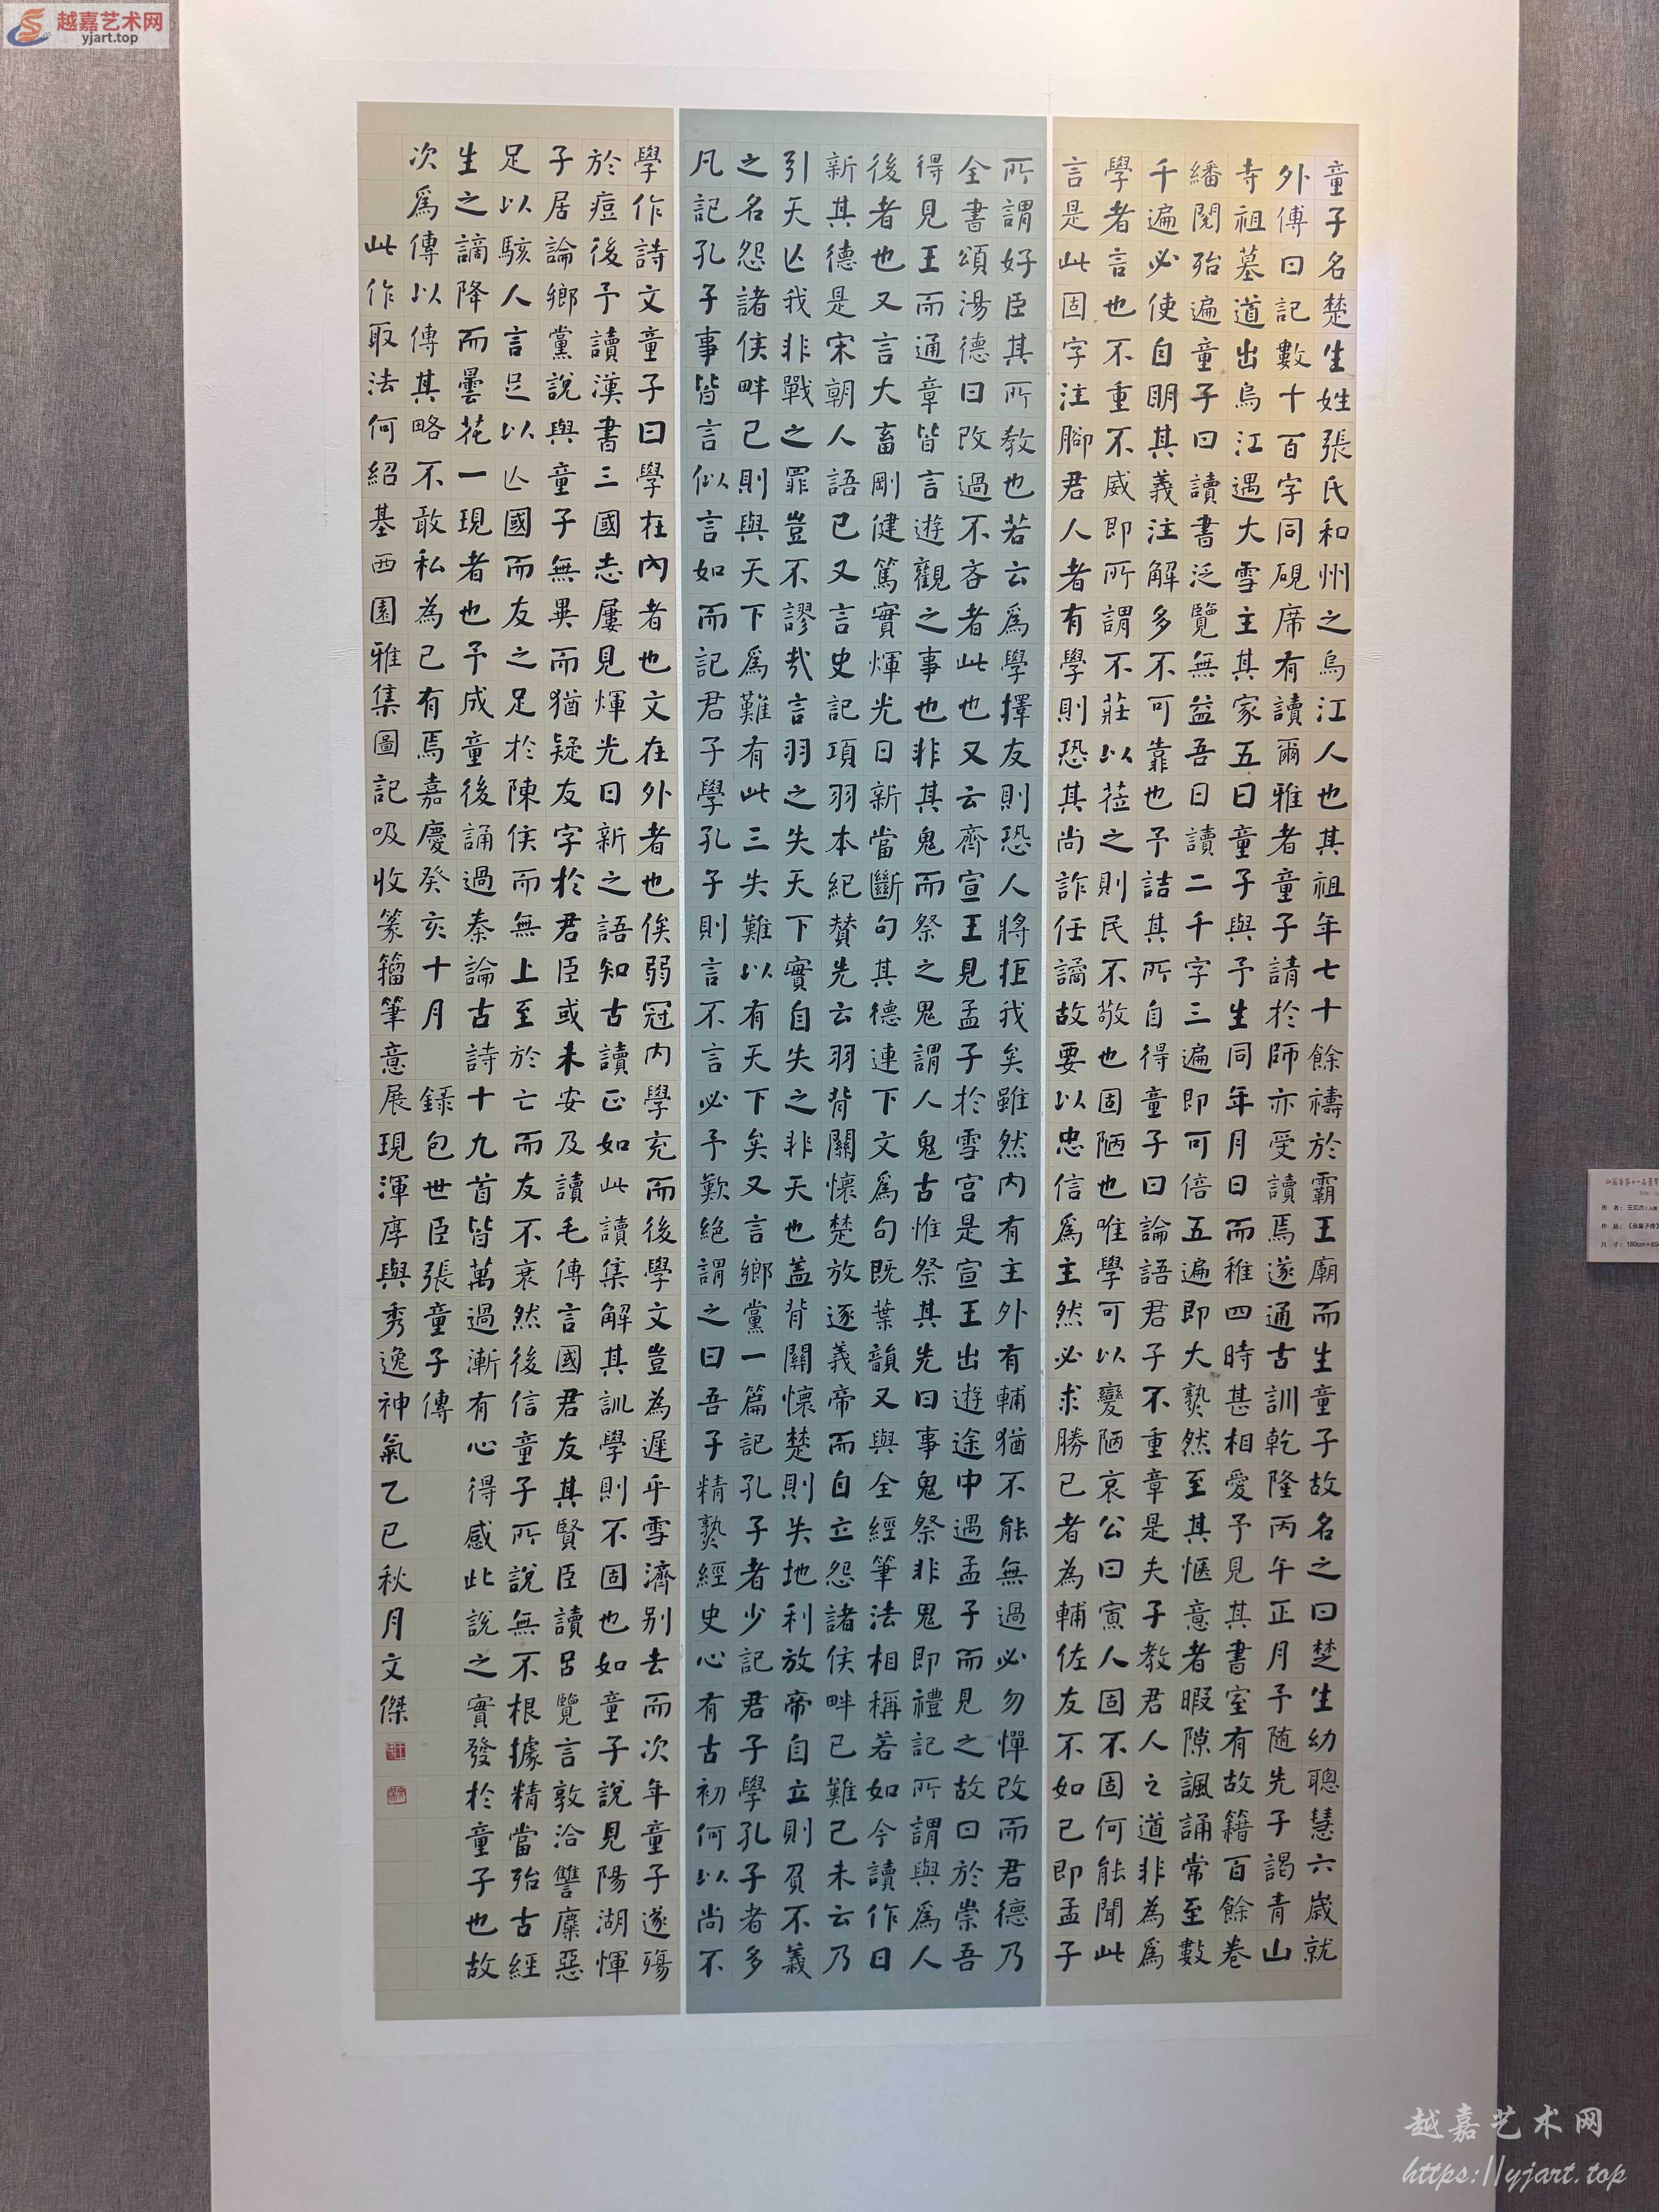 童子名楚生姓張氏和州之烏江人也其祖年七十餘禱於霸王廟而生童子故名之曰楚生幼聰慧六歲就
外傅日記數十百字同硯席有讀爾雅者童子請於師亦受讀焉遂通古訓乾隆丙午正月予随先子謁青山
寺祖墓道出烏江遇大雪主其家五日童子與予生同年月日而稚四時甚相愛予見其書室有故籍百餘卷
繙閱殆遍童子曰讀書泛覽無益吾日讀二千字三遍即可倍五遍即大熟然至其愜意者暇隙諷誦常至數
千遍必使自明其義注解多不可靠也予詰其所自得童子曰論語君子不重章是夫子教君人之道非為爲
學者言也不重不威即所謂不莊以莅之則民不敬也固陋也唯學可以變陋哀公曰寡人固不固何能聞此
言是此固字注腳君人者有學則恐其尚詐任譎故要以忠信爲主然必求勝己者為輔佐友不如己即孟子
所謂好臣其所教也若云爲學擇友則恐人將拒我矣雖然内有主外有輔猶不能無過必勿憚改而君德乃
全書頌湯德曰改過不吝者此也又云齊宣王見孟子於雪宮是宣王出遊途中遇孟子而見之故曰於崇吾
得見王而通章皆言遊觀之事也非其鬼而祭之鬼謂人鬼古惟祭其先曰事鬼祭非鬼即禮記所謂與爲人
後者也又言大畜剛健篤實煇光日新當斷句其德連下文爲句既葉韻又與全經筆法相稱若如今讀作日
新其德是宋朝人語已又言史記項羽本紀贊先云羽背關懷楚放逐義帝而自立怨諸侯畔已難己未云乃
引天亾我非戰之罪豈不謬哉言羽之失天下實自失之非天也盖背關懷楚則失地利放帝自立則負不義
之名怨諸侯畔己則與天下爲難有此三失難以有天下矣又言鄉黨一篇記孔子者少記君子學孔子者多
凡記孔子事皆言似言如而記君子學孔子則言不言必予歎絕謂之曰吾子精熟經史心有古初何以尚不
學作詩文童子曰學在內者也文在外者也俟弱冠内學充而後學文豈為遲乎雪濟别去而次年童子遂殤
於痘後予讀漢書三國志屢見煇光日新之語知古讀正如此讀集解其訓學則不固也如童子說見陽湖惲
子居論鄉黨說與童子無異而猶疑友字於君臣或未安及讀毛傳言國君友其賢臣讀呂覽言敦洽讐糜惡
足以駭人言足以亾國而友之足於陳侯而無上至於亡而友不衰然後信童子所說無不根據精當殆古經
生之謫降而曇花一現者也予成童後誦過秦論古詩十九首皆萬過漸有心得感此說之實發於童子也故
次爲傳以傳其略不敢私為己有焉嘉慶癸亥十月 錄包世臣張童子傳
此作取法何紹基西園雅集圖記吸收篆籀筆意展現渾厚與秀逸神氣乙巳秋月文傑
越嘉艺术网
yjart.top
作 者：王文杰
作 品：《张童子传》
尺 寸：180cm×
越嘉艺术网
https://yjart.top